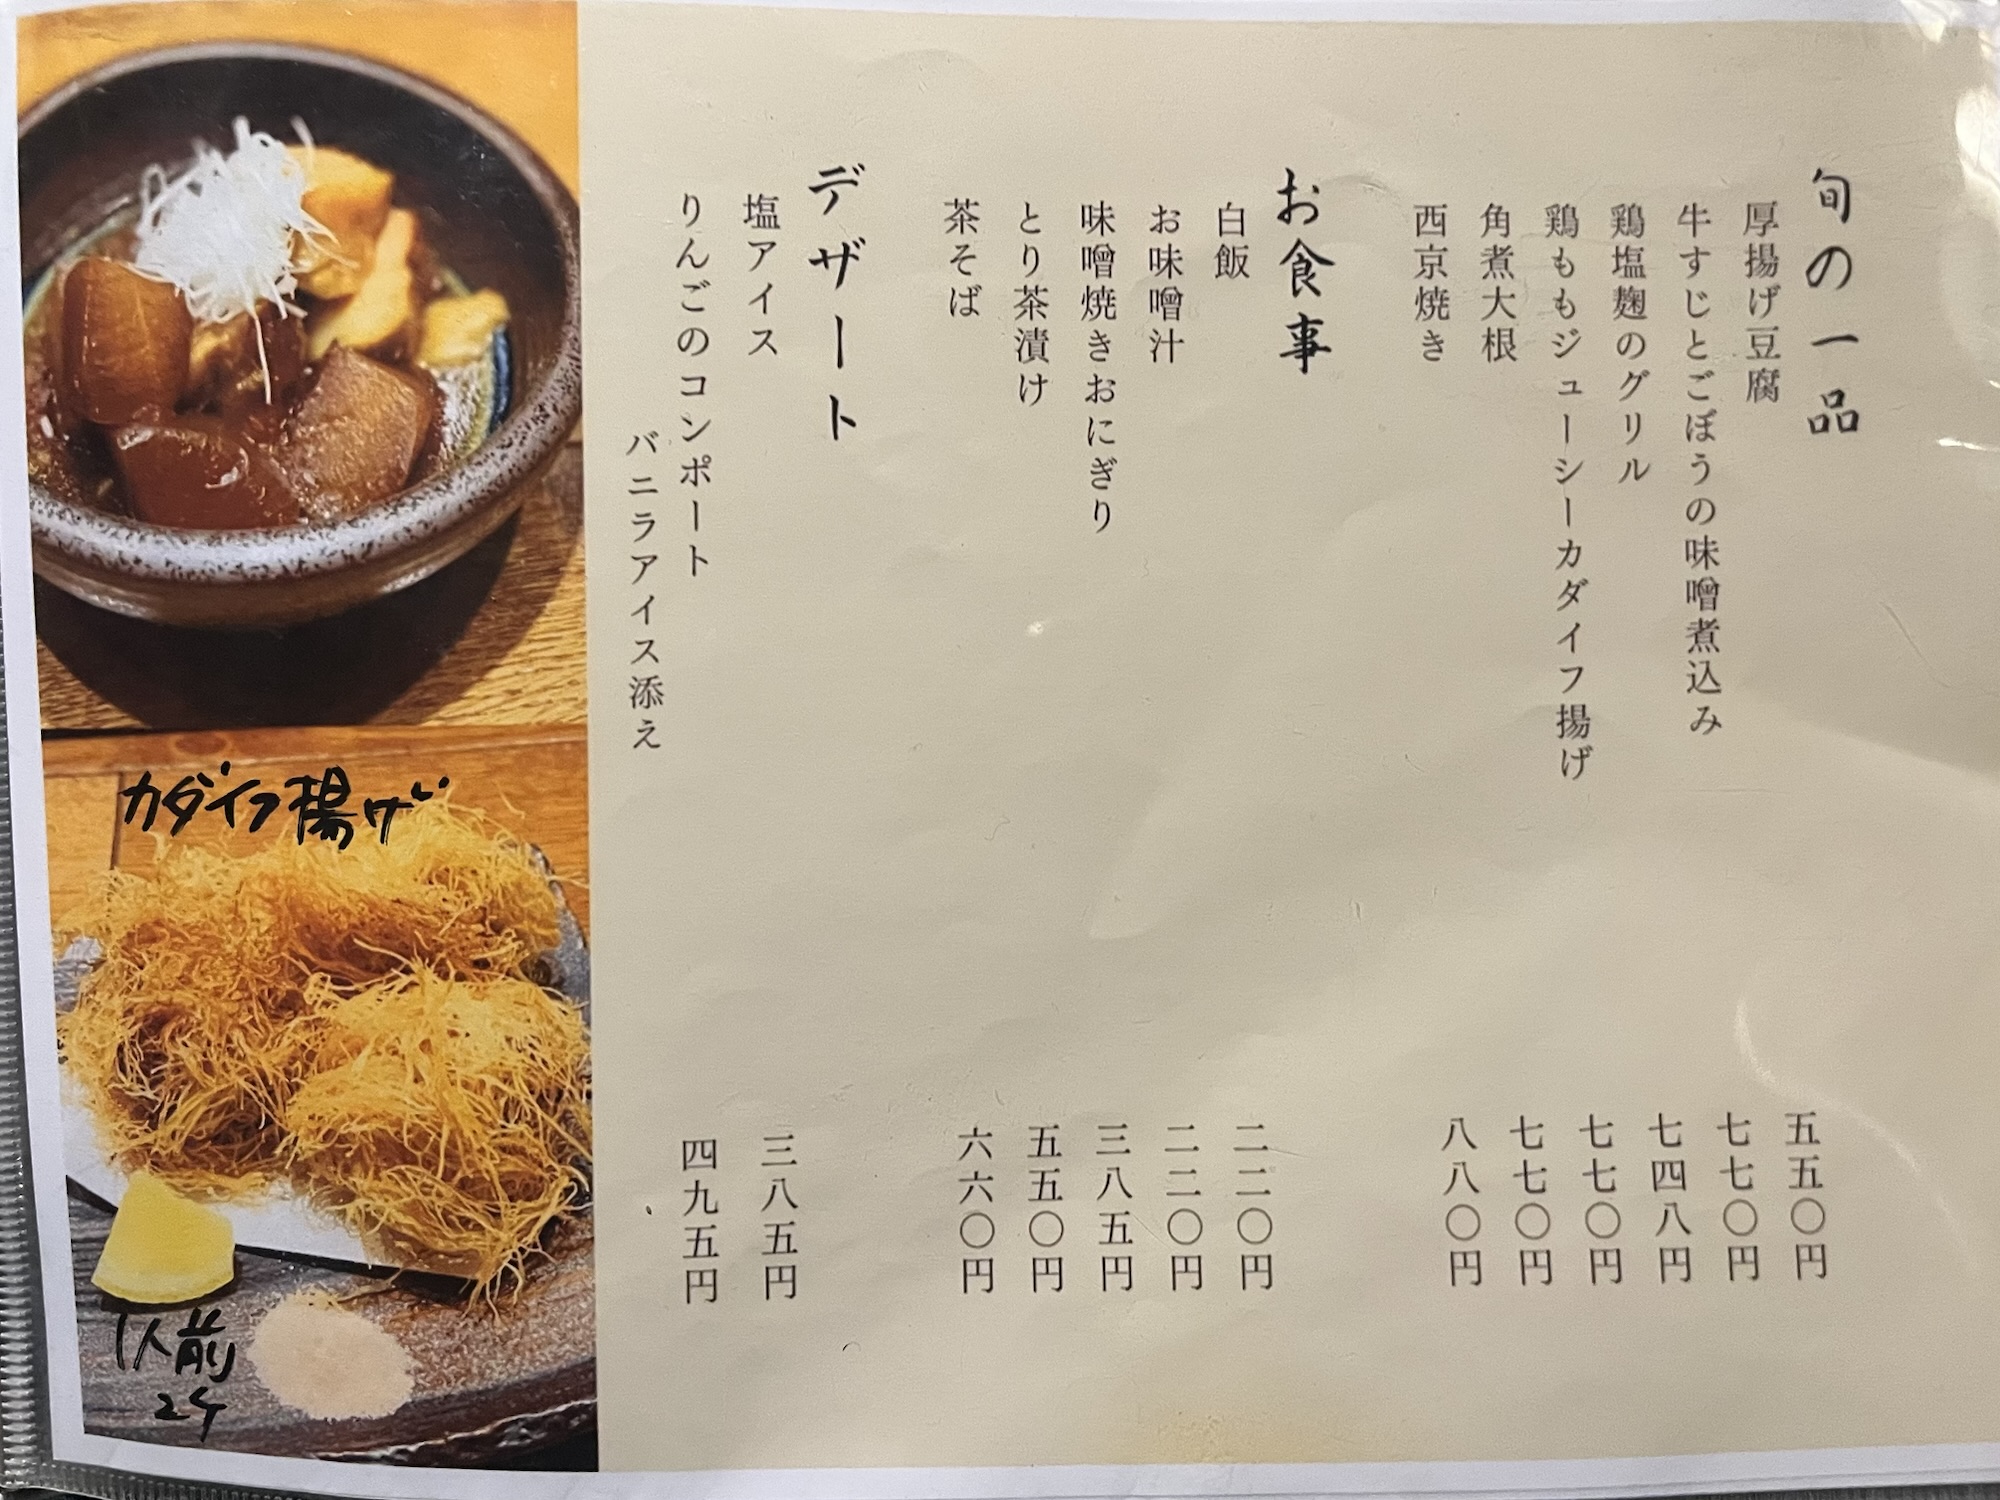 旬の一品
厚揚げ豆腐
五五〇円
牛すじとごぼうの味噌煮込み
七七〇円
鶏塩麹のグリル
七四八円
鶏ももジューシーカダイフ揚げ
七七〇円
角煮大根
七七〇円
西京焼き
八八〇円
お食事
白飯
二二〇円
お味噌汁
二二〇円
味噌焼きおにぎり
三八五円
とり茶漬け
五五〇円
茶そば
六六〇円
デザート
塩アイス
三八五円
りんごのコンポート
バニラアイス添え
四九五円
カダイフ揚げ
1人前
2ケ